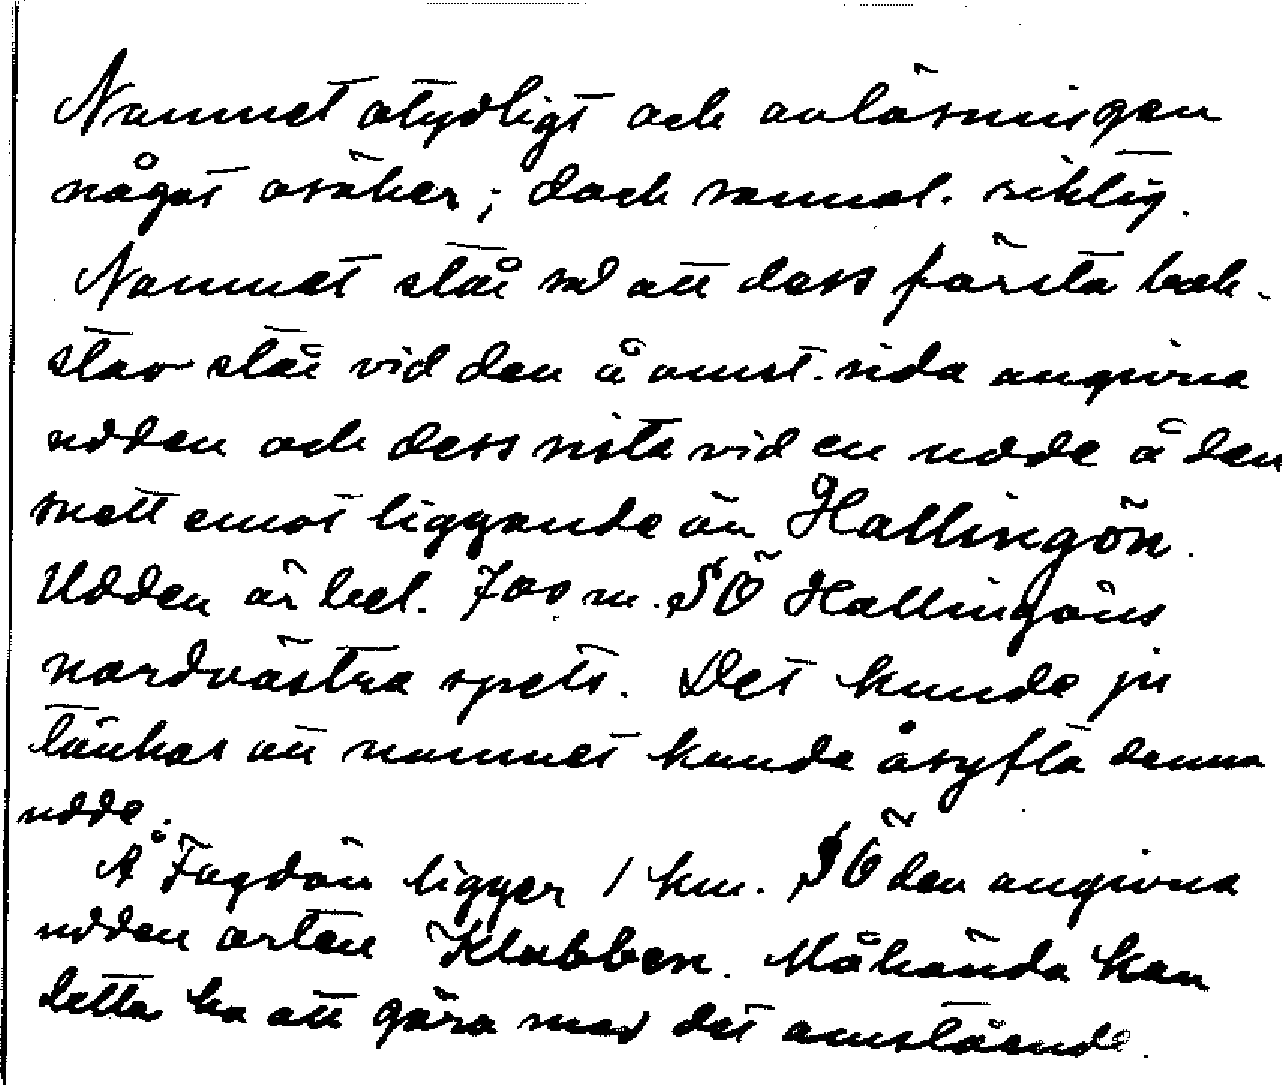 Namnet otydligt och avläsningen
något osäker; dock sannol. riktig.
Namnet står så att dess första bok-
stav står vid den å omst. sida angivna
udden och dess sista vid en udde å den
snett emot liggande ön Hallingön.
Udden är bel. 700 m. SÖ Hallingöns
nordvästra spets. Det kunde ju
tänkas att namnet kunde åsyfta denna
udde.
Å Fagdön ligger 1 km. SÖ den angivna
udden orten Klubben. Måhända kan
detta ha att göra med det omstående.